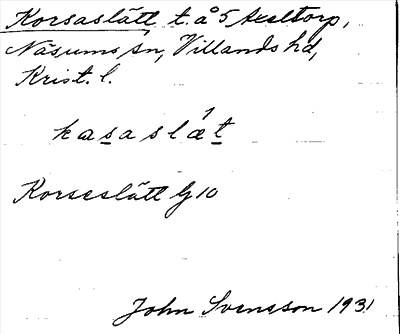 Korsaslätt t. å 5 Axeltorp,
Näsums sn, Villands hd,
Krist. l.
kasaslǽt
Korseslätt G 10
John Svensson 1931